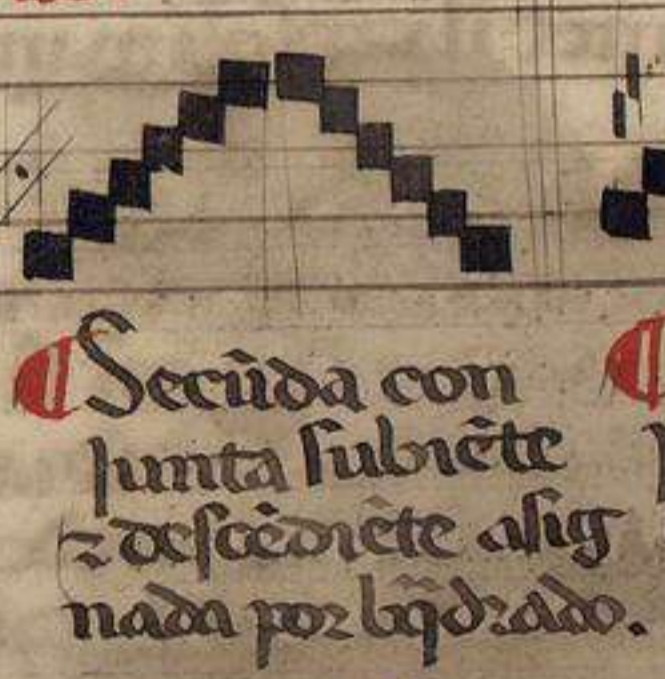 ¶ Secūda con
junta subiēte
⁊ descēdiēte asig
nada por bq̄drado.